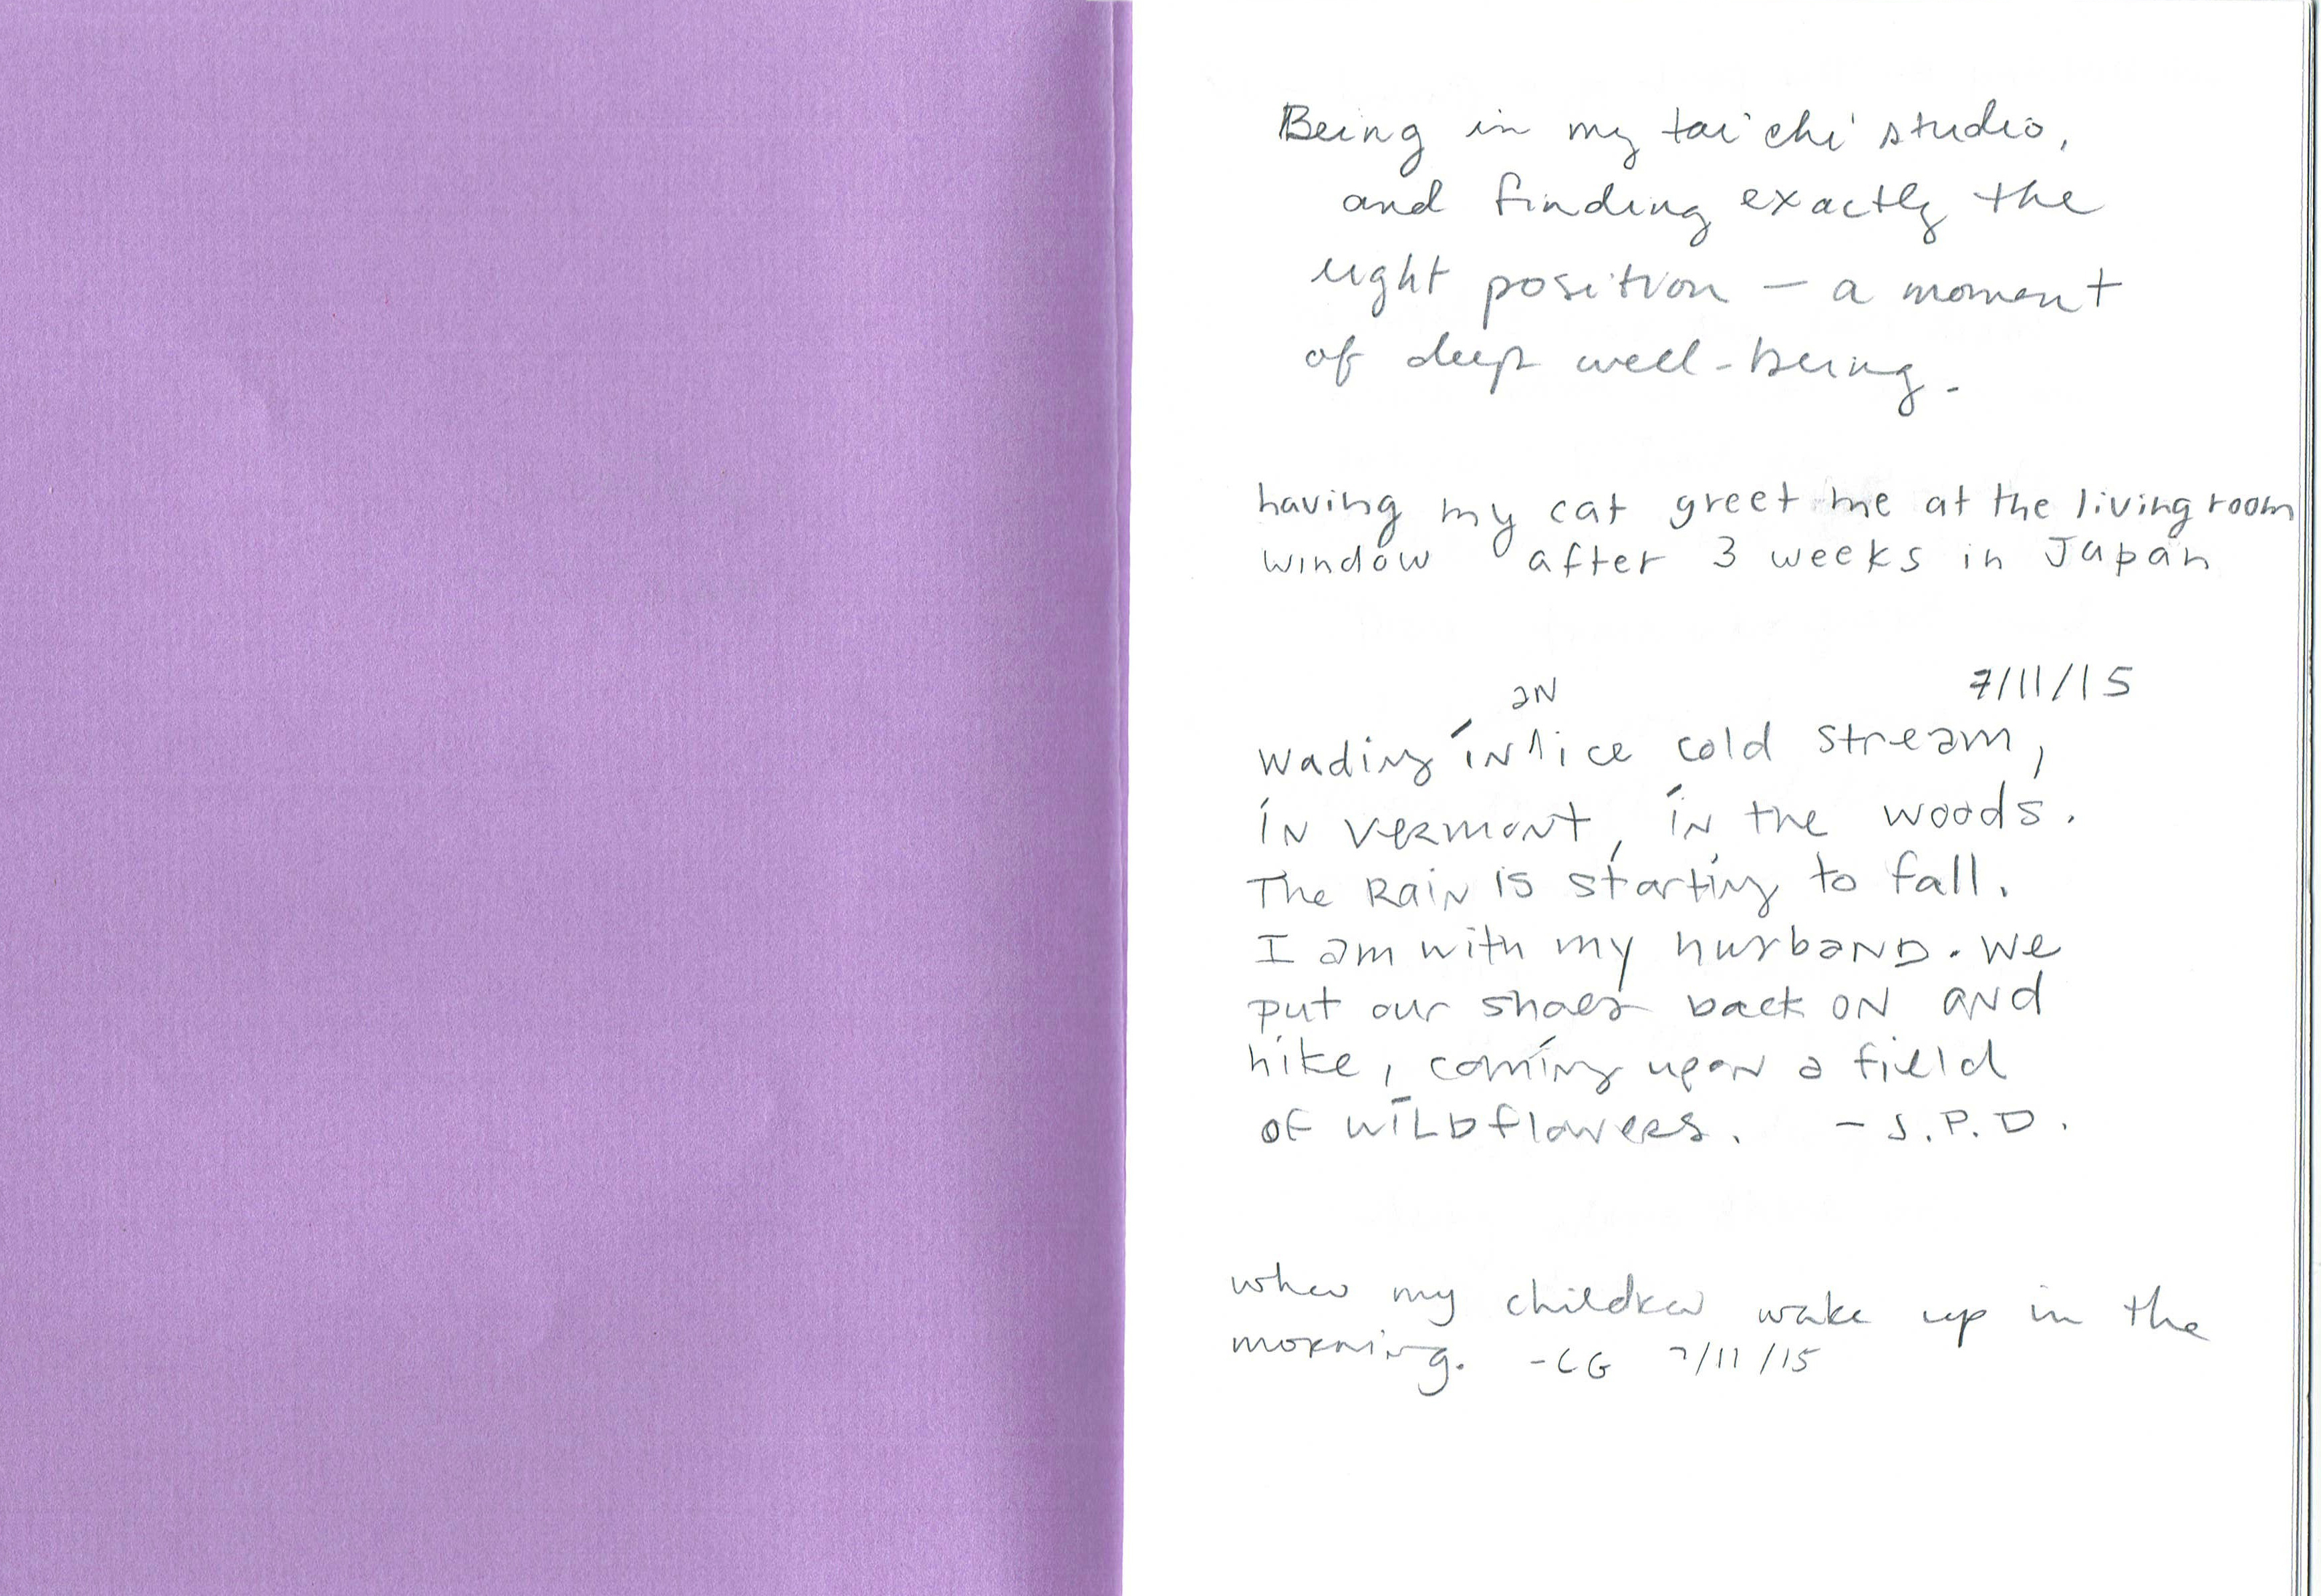 Being in my tai chi studio,
and finding exactly the
right position – a moment
of deep well-being.
having my cat greet me at the living room
window after 3 weeks in Japan
7/11/15
an
Wading in ^ ice cold stream,
in Vermont, in the woods.
The Rain is starting to fall.
I am with my husband. We
put our shoes back on and
hike, coming upon a field
of wildflowers. – S.P.D.
when my children wake up in the
morning. -CG 7/11/15